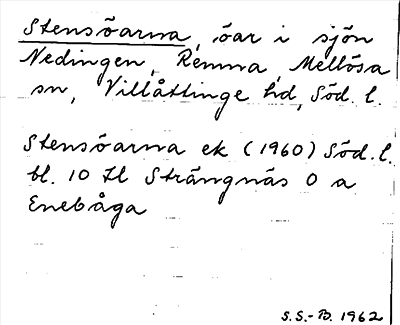 Stensöarna, öar i sjön
Nedingen, Remna, Mellösa
sn, Villåttinge hd, Söd. l.
Stensöarna ek (1960) Söd. l.
bl. 10 Il Strängnäs O a
Enebåga
S.S.-B. 1962